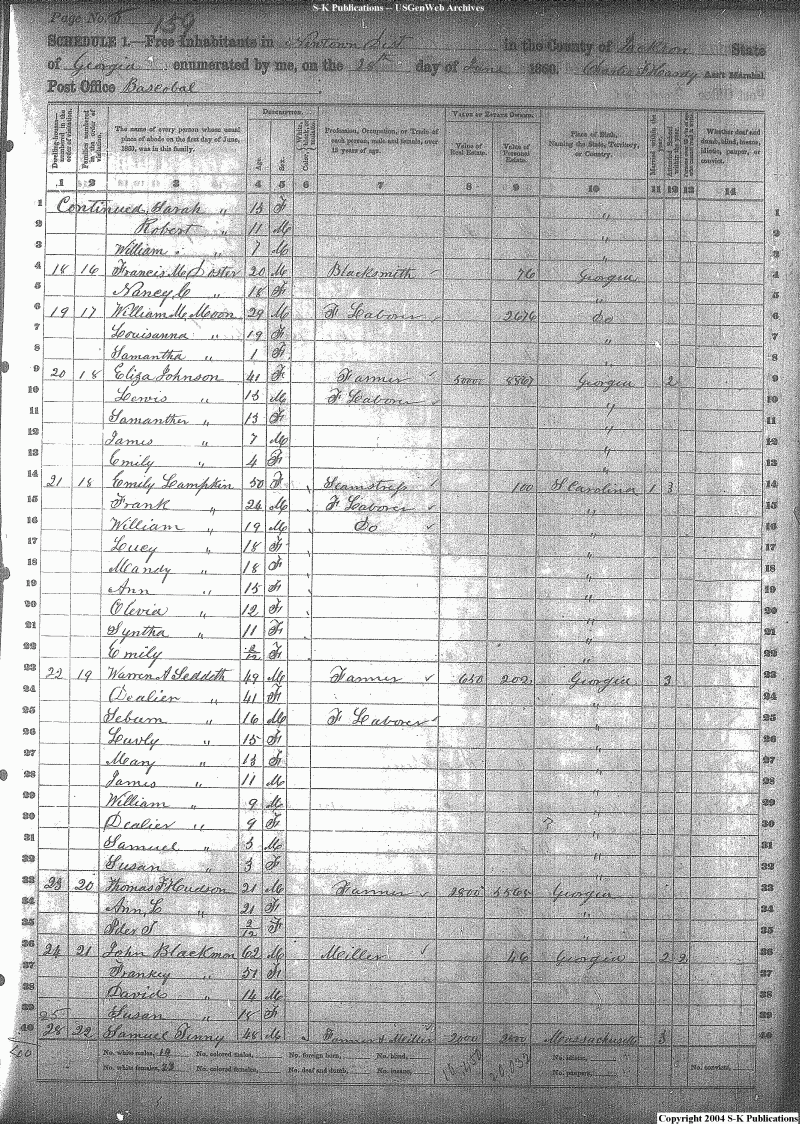 S-K Publications -- USGenWeb Archives
Page No. 5
159
SCHEDULE 1.—Free Inhabitants in Newtown Dist in the County of Jackson State
of Georgia enumerated by me, on the 28th day of June 1860. Charles F Hardy Ass't Marshal
Post Office
Description.
Value of Estate Owned.
Dwelling-houses—numbered in the order of visitation.
Families numbered in the order of visitation.
The name of every person whose usual place of abode on the first day of June, 1860, was in this family.
Age.
Sex.
Profession, Occupation, or Trade of each person, male and female, over 15 years of age.
Value of Real Estate.
Value of Personal Estate.
Place of Birth, Naming the State, Territory, or Country.
Married within the year.
Whether deaf and dumb, blind, insane, idiotic, pauper, or convict.
1 2 3 4 5 6 7 8 9 10 11 12 13 14
1 Continued, Sarah " 13 F " 1
2 Robert " 11 M " 2
3 William " 7 M " 3
4 18 16 Francis M Doster 20 M Blacksmith 76 Georgia 4
5 Nancy C " 18 F " 5
6 19 17 William M Moon 29 M F Laborer 2676 Do 6
7 Louisanna " 19 F " 7
8 Samantha " 1 F " 8
9 20 18 Eliza Johnson 41 F Farmer 5000 Georgia 2 9
10 Lewis " 15 M F Laborer " 10
11 Samanther " 13 F " 11
12 James " 7 M " 12
13 Emily " 4 F " 13
14 21 18 Emily Lampkin 50 F Seamstress 100 S Carolina 1 3 14
15 Frank " 24 M F Laborer " 15
16 William " 19 M Do " 16
17 Lucy " 18 F " 17
18 Mandy " 18 F " 18
19 Ann " 15 F " 19
20 Olevia " 12 F " 20
21 Syntha " 11 F " 21
22 Emily F " 22
23 22 19 Warren A Leddeth 49 M Farmer 650 202 Georgia 3 23
24 Dealier " 41 F " 24
25 Seburn " 16 M F Laborer " 25
26 Luvly " 15 F " 26
27 Mary " 13 F " 27
28 James " 11 M " 28
29 William " 9 M " 29
30 Dealier " 9 F ? 30
31 Samuel " 5 M " 31
32 Susan " 3 F " 32
33 23 20 Thomas F Hudson 21 M Farmer 1800 5565 Georgia 33
34 Ann L " 21 F " 34
35 2/12 F " 35
36 24 21 John Blackmon 62 M Miller 46 Georgia 2 2 36
37 Frankey " 51 F " 37
38 David " 14 M " 38
39 Susan " 18 F " 39
25
40 28 22 Samuel Finny 48 M Farmer & Miller 2000 2500 Massachusetts 3 40
No. white males, 19 No. colored males, No. foreign born, No. blind, No. idiotic,
No. white females, 23 No. colored females, No. deaf and dumb, No. insane, No. paupers, No. convicts,
Copyright 2004 S-K Publications